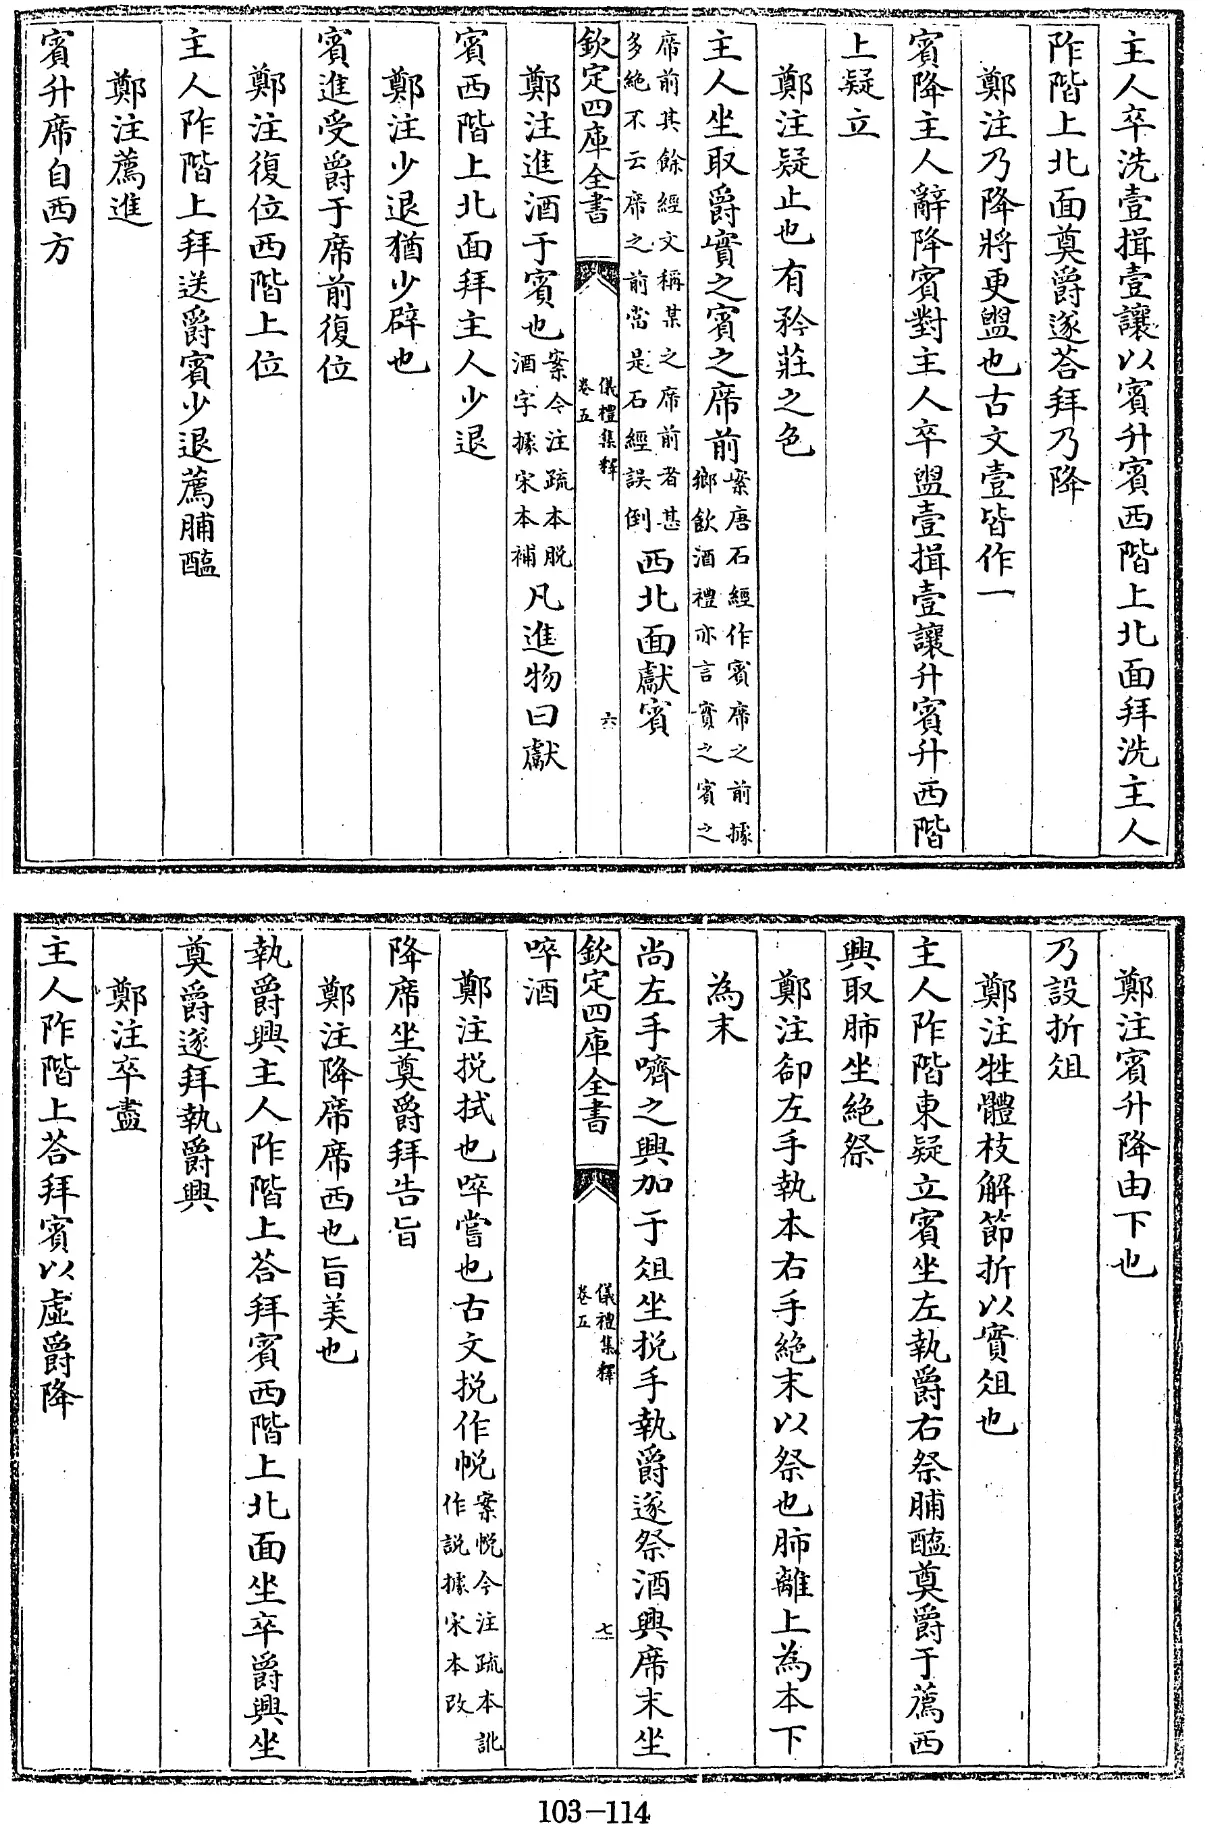 主人卒洗壹揖壹讓以賓升賓西階上北面拜洗主人
阼階上北面奠爵遂荅拜乃降
鄭注乃降將更盥也古文壹皆作一
賓降主人辭降賓對主人卒盥壹揖壹讓升賓升西階
上疑立
鄭注疑止也有矜莊之色
主人坐取爵實之賓之席前案唐石經作賓席之前據鄉飲酒禮亦言實之賓之
席前其餘經文稱某之席前者甚多絶不云席之前當是石經誤倒西北面獻賓
欽定四庫全書 儀禮集釋 卷五 六
鄭注進酒于賓也案今注疏本脱酒字據宋本補凡進物曰獻
賓西階上北面拜主人少退
鄭注少退猶少辟也
賓進受爵于席前復位
鄭注復位西階上位
主人阼階上拜送爵賓少退薦脯醢
鄭注薦進
賓升席自西方
鄭注賓升降由下也
乃設折俎
鄭注牲體枝解節折以實俎也
主人阼階東疑立賓坐左執爵右祭脯醢奠爵于薦西
興取肺坐絶祭
鄭注卻左手執本右手絶末以祭也肺離上為本下
為末
尚左手嚌之興加于俎坐挩手執爵遂祭酒興席末坐
欽定四庫全書 儀禮集釋 卷五 七
啐酒
鄭注挩拭也啐嘗也古文挩作帨案帨今注疏本訛作説據宋本改
降席坐奠爵拜告旨
鄭注降席席西也旨美也
執爵興主人阼階上荅拜賓西階上北面坐卒爵興坐
奠爵遂拜執爵興
鄭注卒盡
主人阼階上荅拜賓以虛爵降
103-114